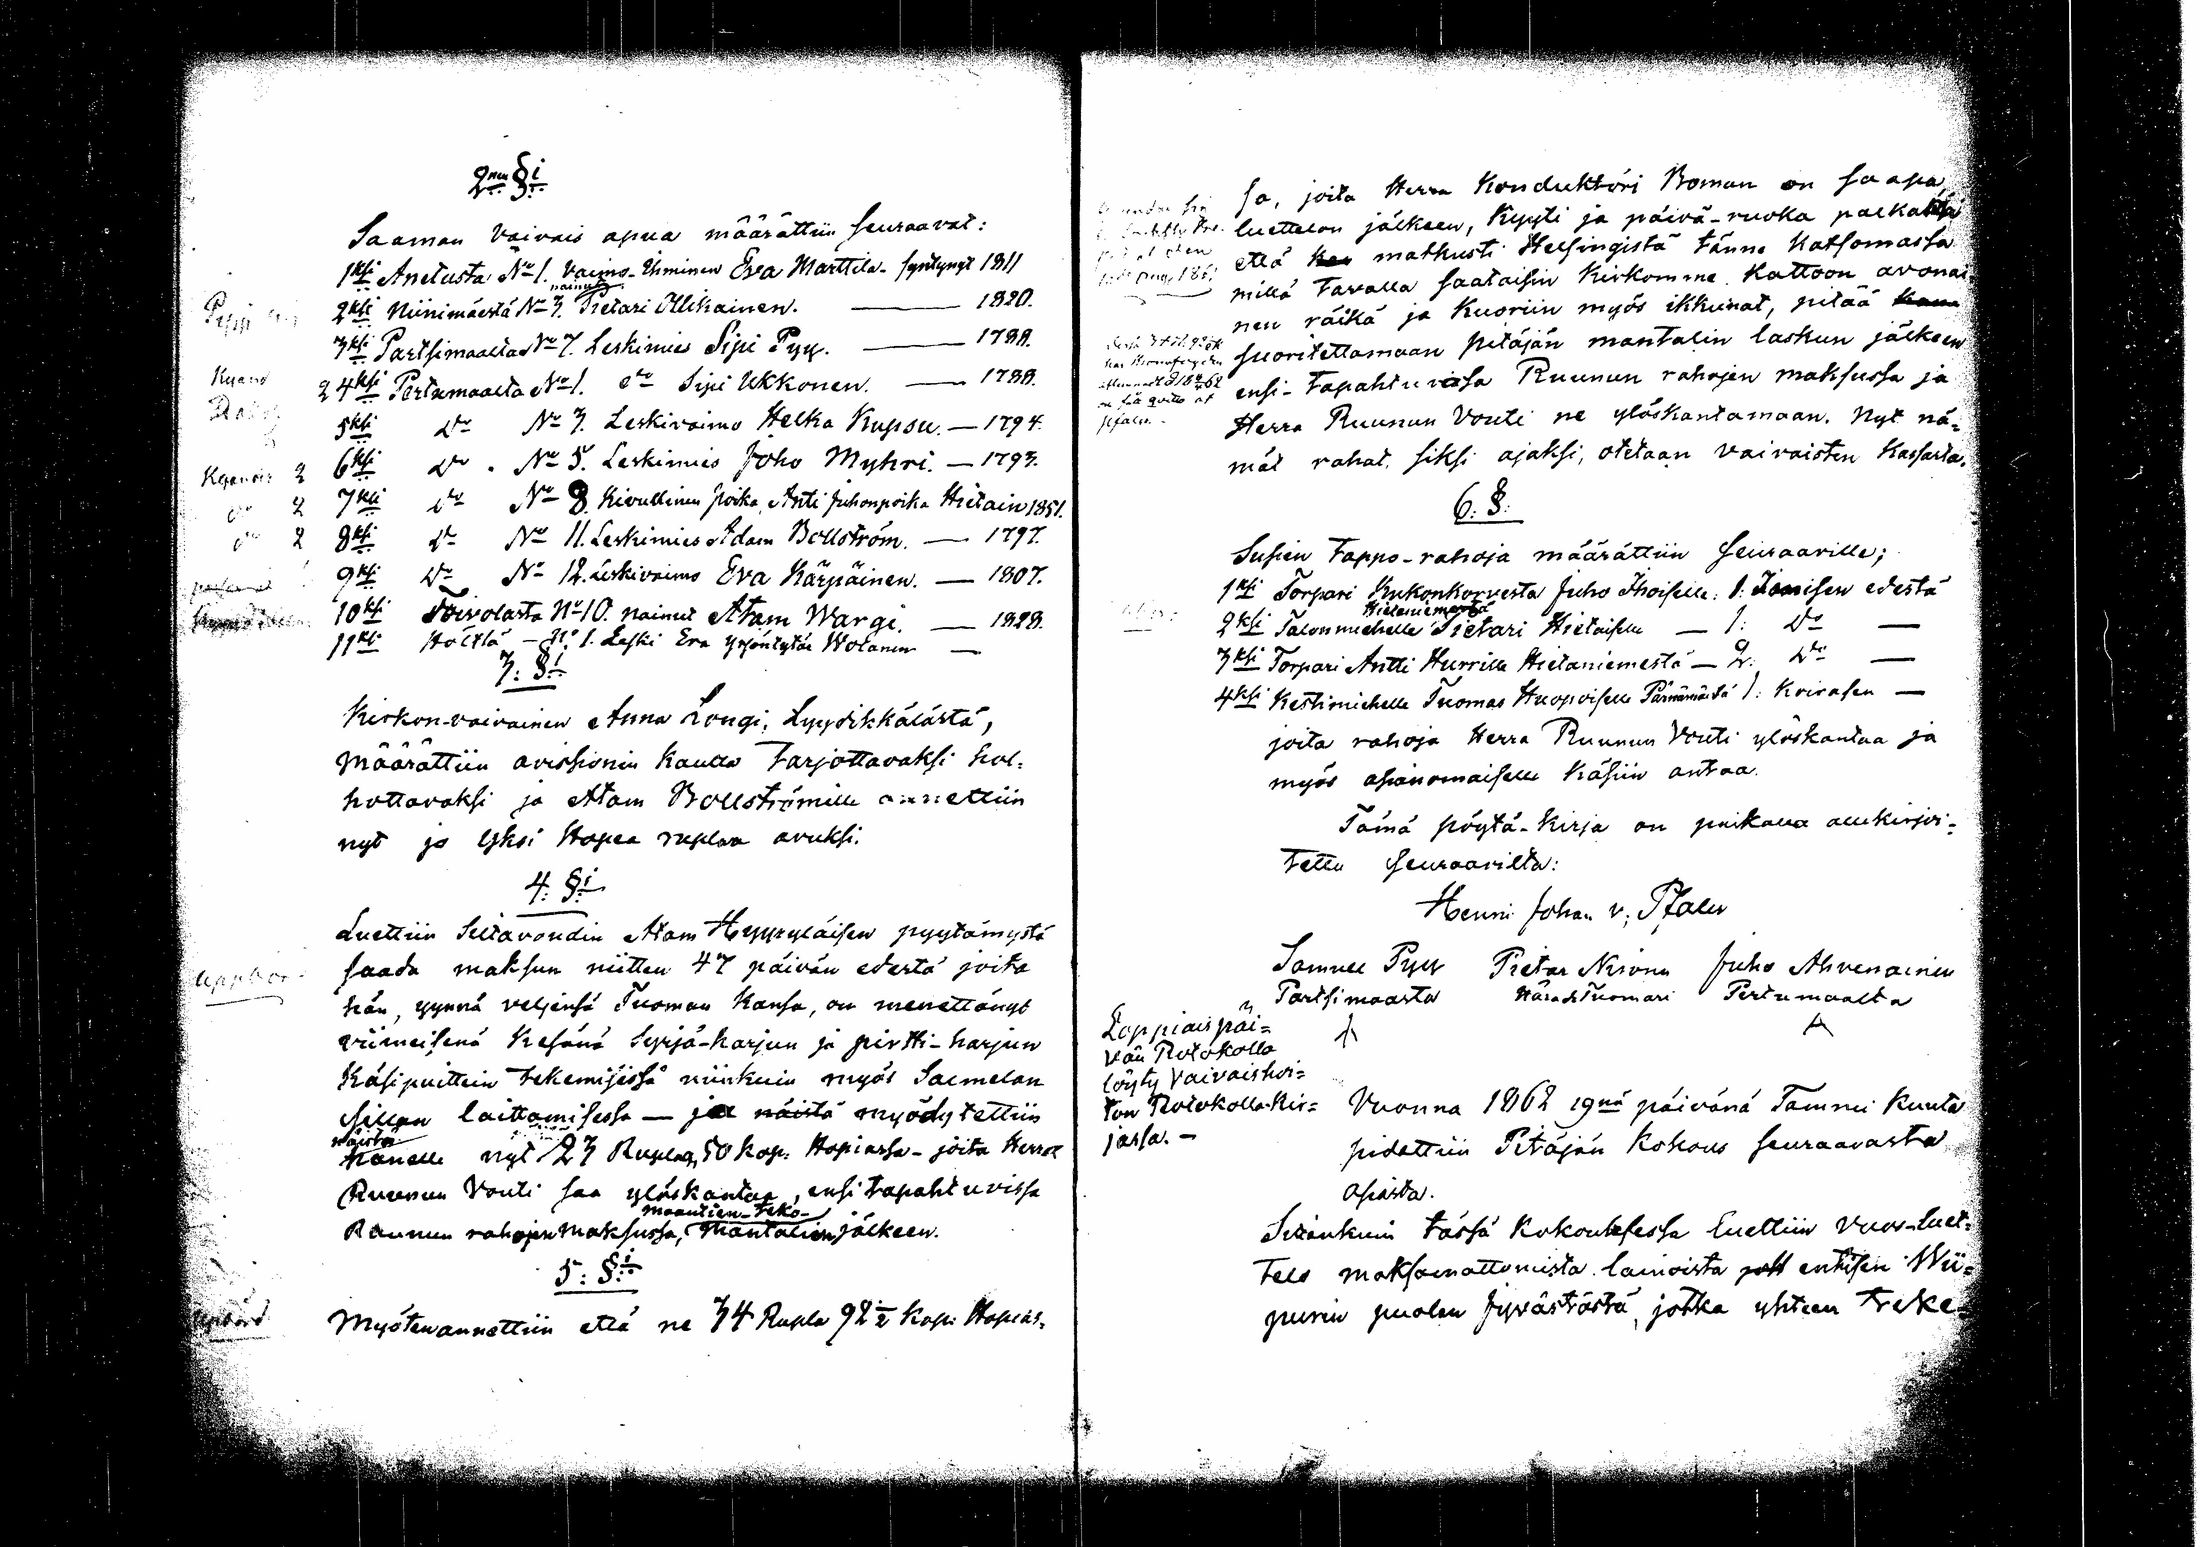 2nen §i
Saaman vaivais apua määrättiin seuraavat:
1ksi Anetusta No 1. Vaimo-Ihminen Eva Marttila - syntynyt 1811
nainut
2ksi Niinimäestä No 3. Pietari Ollikainen. — 1820.
3ksi Partsimaalta No 7. Leskimies Sipi Pyy. — 1788.
2 4ksi Pertumaalta No 1. do Sipi Ukkonen. — 1788.
5ksi do No 3. Leskivaimo Helka Kupsu. — 1794.
2 6ksi do No 5. Leskimies Joho Myhri. — 1793.
do 2 7ksi do No 8. Kivullinen poika, Anti Juhonpoika Hietain 1851.
do 2 8ksi do No 11. Leskimies Adam Bollström. — 1797.
9ksi do No 12. Leskivaimo Eva Kärpäinen. — 1807.
10ksi Toivolasta No 10. nainut Atam Wargi. — 1828.
11ksi Höltlä - No 1. Leski Eva Wotanen —
3: §i
Kirkon-vaivainen Anna Longi, Lyydikkälästä,
Määrättiin avissionin kautta tarjottavaksi hol-
hottavaksi ja Atam Bollströmille annettiin
nyt jo Yksi Hopea ruplaa avuksi.
4: §i
Luettiin Siltavoudin Atam Heyryläisen pyytämystä
saada maksun niitten 47 päivän edestä joita
hän, yynnä veljensä Tuoman kansa, on menettänyt
viimeisenä Kesänä Syrjä-harjun ja pirtti-harjun
Käsipuittein tekemisessä niinkuin myös Saemelan
sillan laittamisessa — ja näistä myödytettiin
näistä
hänelle nyt 23 Ruplaa, 50 kop: Hopiassa - joita Herra
Ruunun Vouti saa ylöskantaa, ensi tapahtuvissa
maantien-teko-
Ruunun rahojen maksussa, Mantalien jälkeen.
5: §i
Myötenannettiin että ne 34 Rupla 92 ½ Kop: Hopias-
sa, joita Herra Konduktöri Boman on saapa,
luettelon jälkeen, Kyyti ja päivä-ruoka palkaksi
että han matkusti Helsingistä tänne katsomassa
millä tavalla saataisiin Kirkomme Kattoon avonai
nen räikä ja Kuoriin myös ikkunat, pitää
suoritettamaan pitäjän mantalin laskun jälkeen
ensi-tapahtuvissa Ruunun rahojen maksussa ja
Herra Ruunun Vouti ne ylöskantamaan. Nyt nä-
mät rahat, siksi ajaksi, otetaan vaivaisten Kassasta.
6: §:
Susien tappo-rahoja määrättiin seuraaville;
1ksi Torpari Kukonkorvesta Juho Ihoiselle: 1: Iamisen edestä
Hietaniemestä
2ksi Talonmiehelle Pietari Hietaiselle — 1: do —
3ksi Torpari Antti Hurrille Hietaniemestä — 2: do —
4ksi Kestimiehelle Tuomas Huopoiselle Pärnämäestä 1: Koirasen —
joita rahoja Herra Ruunun Vouti ylöskantaa ja
myös asianomaiselle käsiin antaa.
Tämä pöytä-kirja on paikalla allekirjoi-
tettu seuraavilta:
Henri Johan v; Pfaler
Samuel Pyy Pietar Nironen Juho Ahvenainen
Partsimaasta HäradsTuomari Pertumaalta
Loppiais päi-
vän Protokolla
löyty Vaivaishoi-
ton Protokolla-Kir-
jassa. -
Vuonna 1862 19nä päivänä Tammi Kuuta
pidettiin Pitäjän Kokous seuraavasta
asiasta.
Sitänkuin tässä kokouksessa luettiin vuos-luet-
telo maksamattomista lainoista entisen Wii-
purin puolen jyvästöstä, jotka yhteen teke-